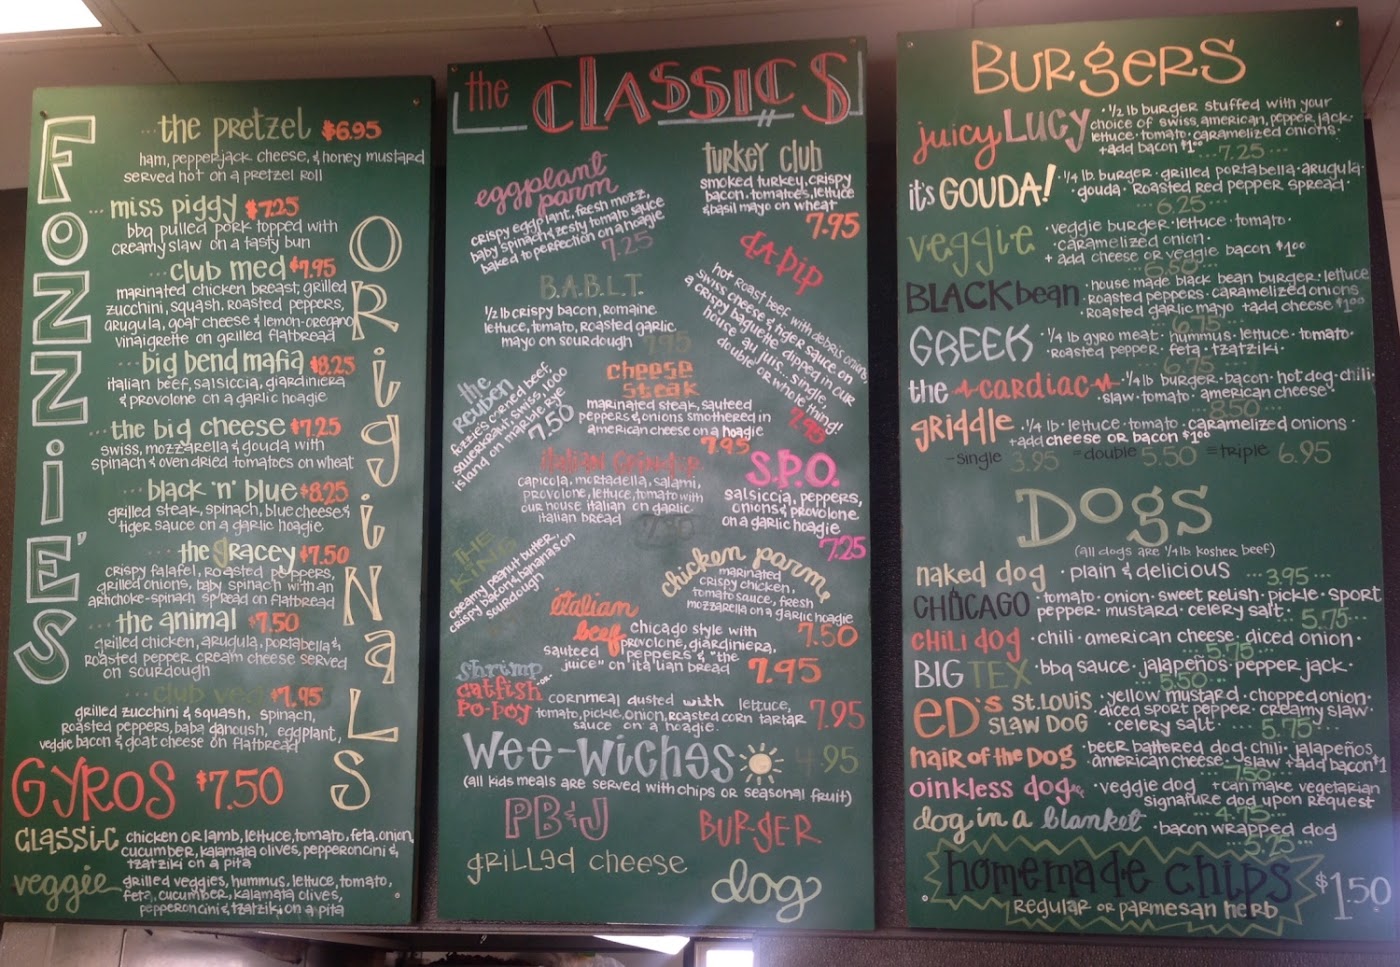 FOZZIE'S
ORiginaLS
the pretzel $6.95
ham, pepperjack cheese, & honey mustard
served hot on a pretzel roll
miss piggy $7.25
bbq pulled pork topped with
creamy slaw on a tasty bun
club med $7.95
marinated chicken breast, grilled
zucchini, squash, roasted peppers,
arugula, goat cheese & lemon-oregano
vinaigrette on grilled flatbread
big bend mafia $8.25
italian beef, salsiccia, giardiniera
& provolone on a garlic hoagie
the big cheese $7.25
swiss, mozzarella & gouda with
spinach & oven dried tomatoes on wheat
black 'n' blue $8.25
grilled steak, spinach, blue cheese &
tiger sauce on a garlic hoagie
the gracey $7.50
crispy falafel, roasted peppers,
grilled onions, baby spinach with an
artichoke-spinach spread on flatbread
the animal $7.50
grilled chicken, arugula, portabella &
roasted pepper cream cheese served
on sourdough
club veg $7.95
grilled zucchini & squash, spinach,
roasted peppers, baba danoush, eggplant,
veggie bacon & goat cheese on flatbread
GYROS $7.50
classic chicken or lamb, lettuce, tomato, feta, onion,
cucumber, kalamata olives, pepperoncini &
tzatziki on a pita
veggie grilled veggies, hummus, lettuce, tomato,
feta, cucumber, kalamata olives,
pepperoncini & tzatziki on a pita
the CLASSICS
eggplant
parm
crispy eggplant, fresh mozz,
baby spinach & zesty tomato sauce
baked to perfection on a hoagie
7.25
turkey club
smoked turkey, crispy
bacon, tomatoes, lettuce
& basil mayo on wheat
7.95
B.A.B.L.T.
1/2 lb crispy bacon, romaine
lettuce, tomato, roasted garlic
mayo on sourdough
7.95
da dip
hot roast beef with debris onions,
swiss cheese & tiger sauce on
a crispy baguette dipped in our
house au jus... single,
double or whole thing!
7.95
the
reuben
fozzie's corned beef,
sauerkraut, swiss, 1000
island on marble rye
7.50
cheese
steak
marinated steak, sauteed
peppers & onions smothered in
american cheese on a hoagie
7.95
italian
capicola, mortadella, salami,
provolone, lettuce, tomato with
our house italian on garlic
italian bread
S.P.O.
salsiccia, peppers,
onions & provolone
on a garlic hoagie
7.25
THE
KING
creamy peanut butter,
crispy bacon & bananas on
sourdough
chicken parm
marinated
crispy chicken,
tomato sauce, fresh
mozzarella on a garlic hoagie
7.50
italian
beef
Chicago style with
provolone, giardiniera,
sauteed peppers & "the
juice" on italian bread
7.95
shrimp
-or-
catfish
po-boy
cornmeal dusted with lettuce,
tomato, pickle, onion, roasted corn tartar
sauce on a hoagie
7.95
wee-wiches 4.95
(all kids meals are served with chips or seasonal fruit)
PB&J
BURGER
grilled cheese
dog
BURgeRS
juicy LUCY · 1/2 lb burger stuffed with your
choice of swiss, american, pepper jack·
lettuce · tomato · caramelized onions·
+add bacon $1.00
7.25
it's GOUDA! · 1/4 lb. burger · grilled portabella · arugula·
gouda · roasted red pepper spread ·
6.25
veggie · veggie burger · lettuce · tomato·
· caramelized onion·
+ add cheese or veggie bacon $1.00
6.50
BLACK bean · house made black bean burger · lettuce
· roasted peppers · caramelized onions
· roasted garlic mayo +add cheese $1.00
6.75
GREEK · 1/4 lb gyro meat · hummus · lettuce · tomato·
·roasted pepper · feta · tzatziki·
6.75
the cardiac · 1/4 lb burger · bacon · hot dog · chili·
· slaw · tomato · american cheese·
8.50
griddle · 1/4 lb · lettuce · tomato · caramelized onions ·
+add cheese or bacon $1.00
-single 3.95 =double 5.50 ≡triple 6.95
DOgS
(all dogs are 1/4 lb kosher beef)
naked dog · plain & delicious 3.95
CHICAGO · tomato · onion · sweet relish · pickle · sport
pepper · mustard · celery salt ·
5.75
chili dog · chili · american cheese · diced onion·
5.75
BIG TEX · bbq sauce · jalapeños · pepper jack ·
5.50
ED's St. Louis
slaw dog
· yellow mustard · chopped onion·
· diced sport pepper · creamy slaw ·
· celery salt ·
5.75
hair of the Dog · beer battered dog · chili · jalapeños
· american cheese · slaw +add bacon $1
7.50
oinkless dog · veggie dog +can make vegetarian
signature dog upon request
4.75
dog in a blanket · bacon wrapped dog
5.25
homemade chips $1.50
regular or parmesan herb